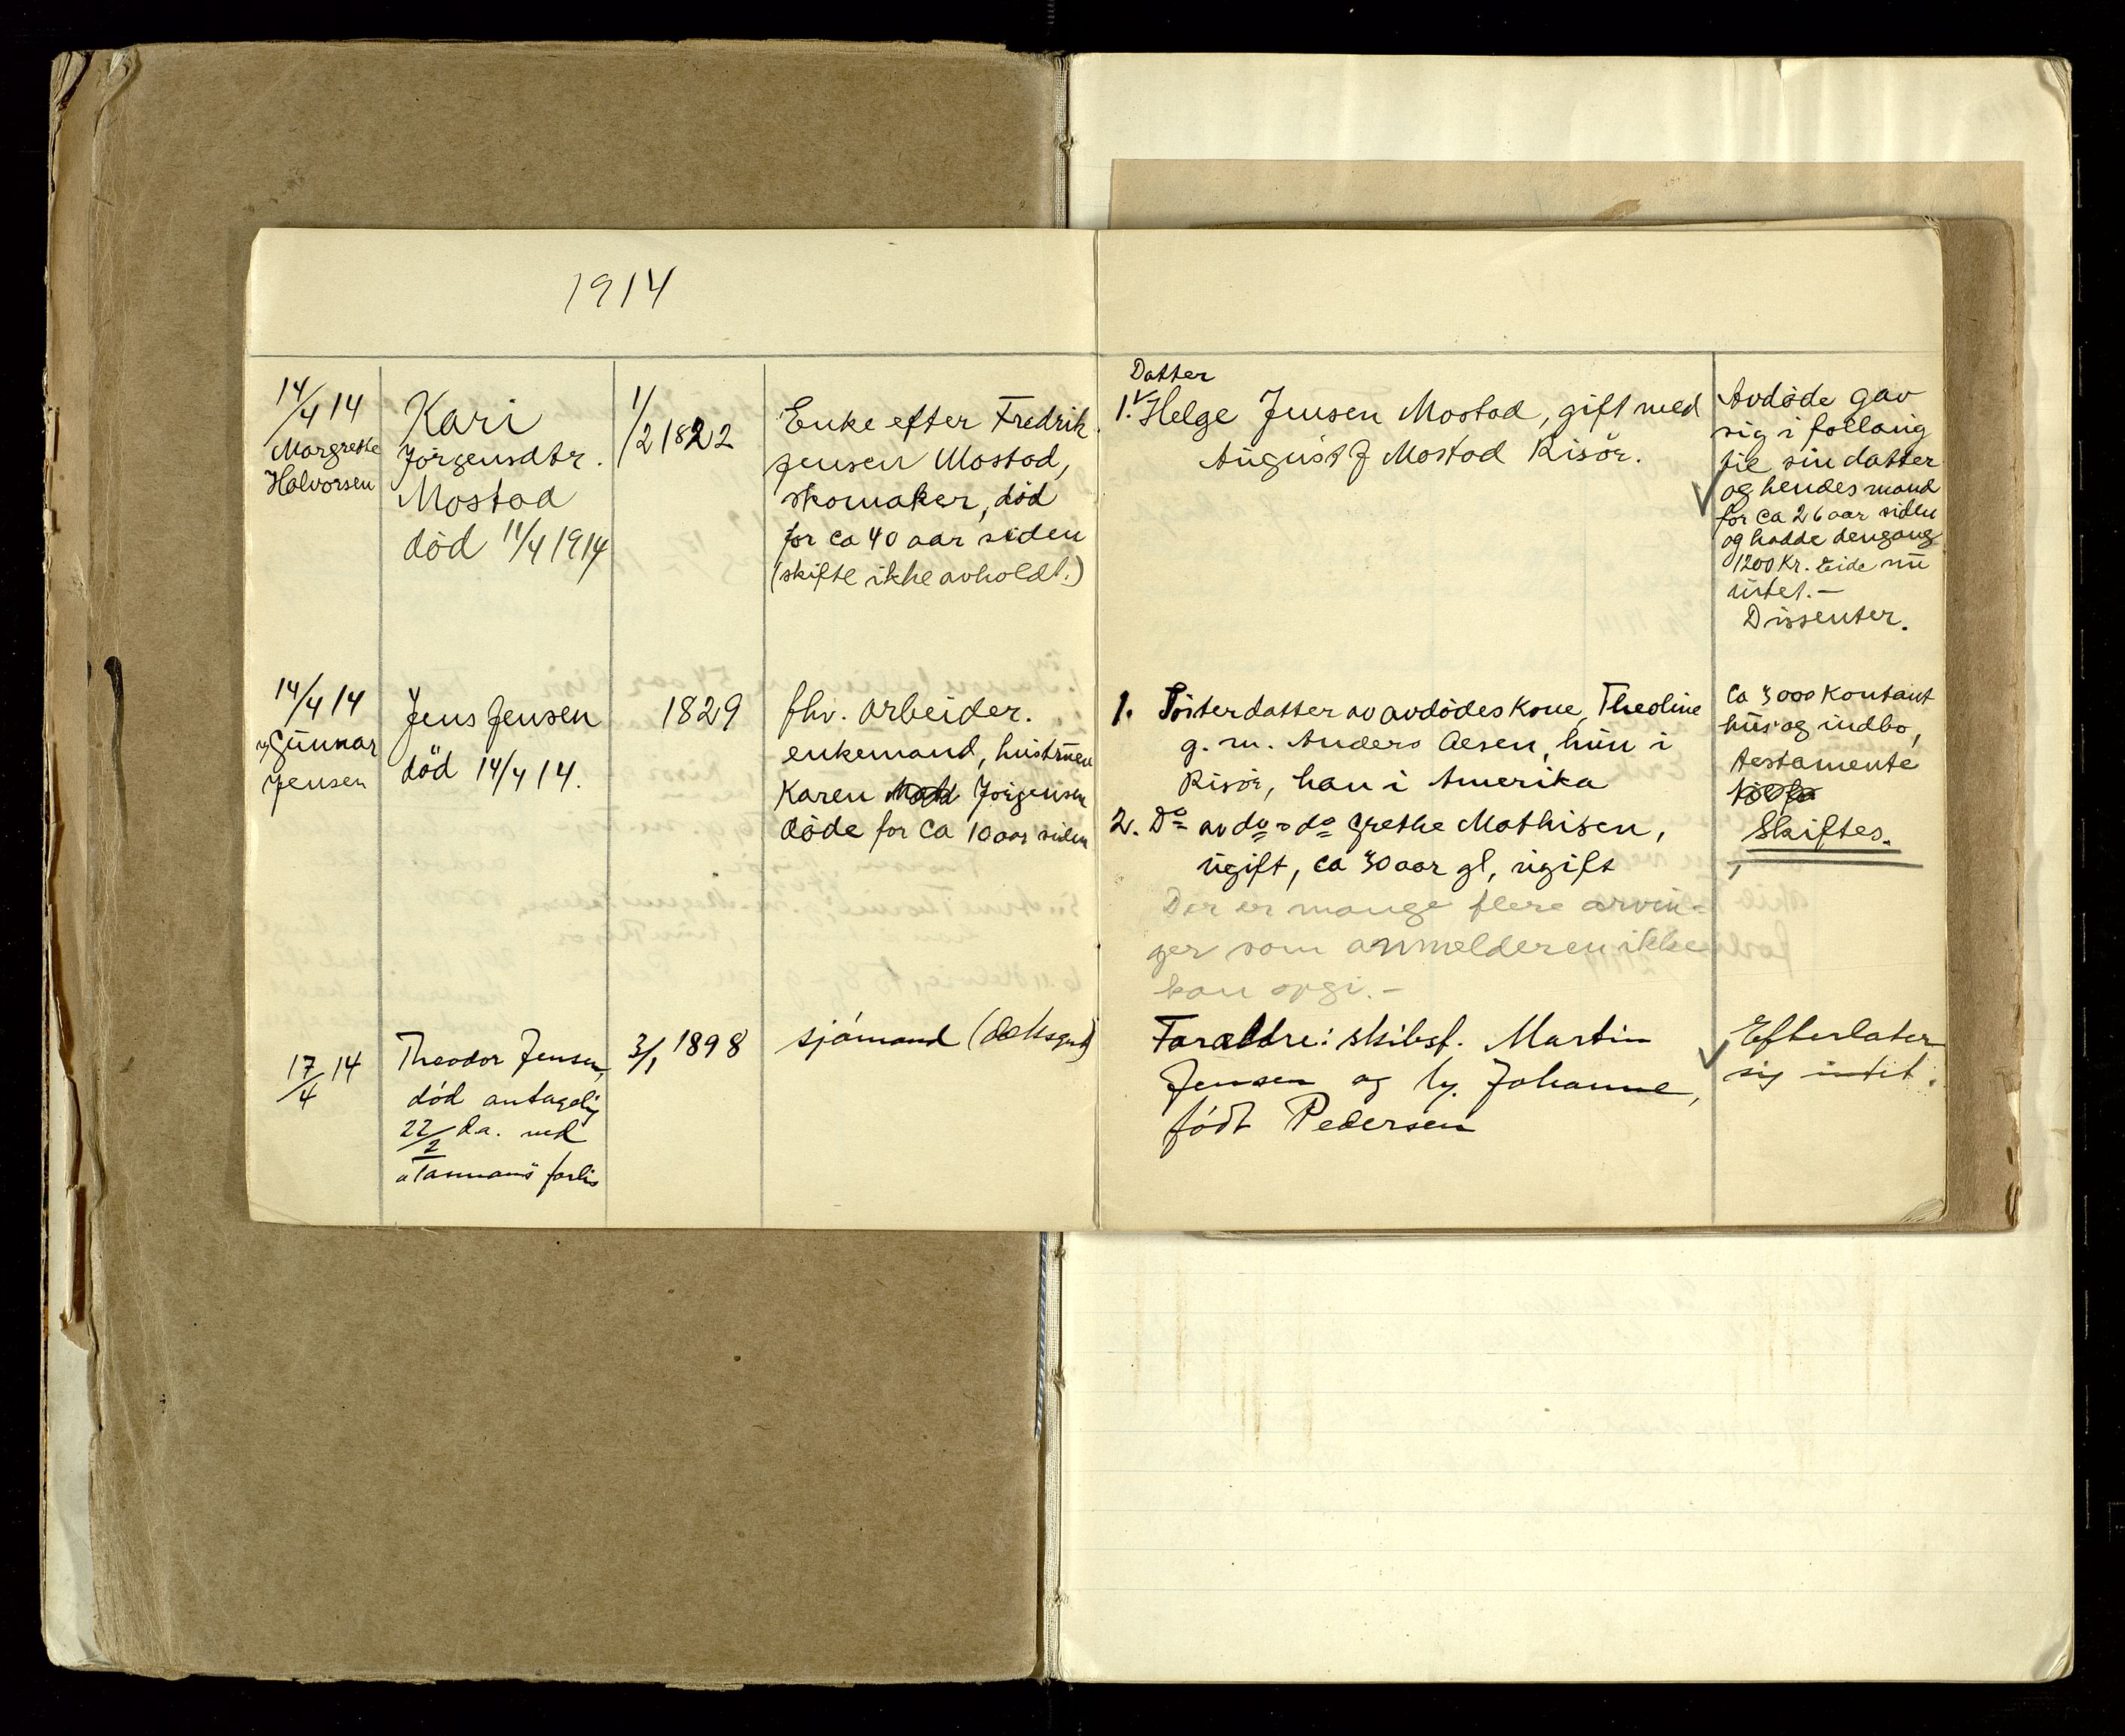 1914
14/4 14
Margrethe
Halvorsen
Kari
Jörgensdtr.
Mostad
död 11/4 1914
1/2 1822
Enke efter Fredrik
Jensen Mostad,
skomaker, död
for ca 40 aar siden
(skifte ikke avholdt.)
Datter
1. Helge Jensen Mostad, gift med
August J Mostad Risör.
Avdöde gav
sig i follaug
til sin datter
og hendes mand
for ca 26 aar siden
og hadde dengang
1200 Kr. Eide nu
intet.-
Dissenter.
14/4 14
Gunnar
Jensen
Jens Jensen
död 14/4 14.
1829
fhv. arbeider.
enkemand, hustruen
Karen Jörgensen
döde for ca 10 aar siden
1. Sösterdatter av avdödes kone, Theoline
g. m. Anders Aesen, hun i
Risör, han i Amerika
2. Do av do - do Grethe Mathisen,
ugift, ca 30 aar gl, ugift
Der er mange flere arvin-
ger som anmelderen ikke
kan opgi.-
Ca 3000 kontant
hus og indbo,
testamente
Skiftes.
17/4 14
Theodor Jensen,
död antagelig
22/2 d.a. ved
"Tasmans" forlis
3/1 1898
sjómand (dæksgut)
Forældre: skibsf. Martin
Jensen og h. Johanne,
födt Pedersen
Efterlater
sig intet.